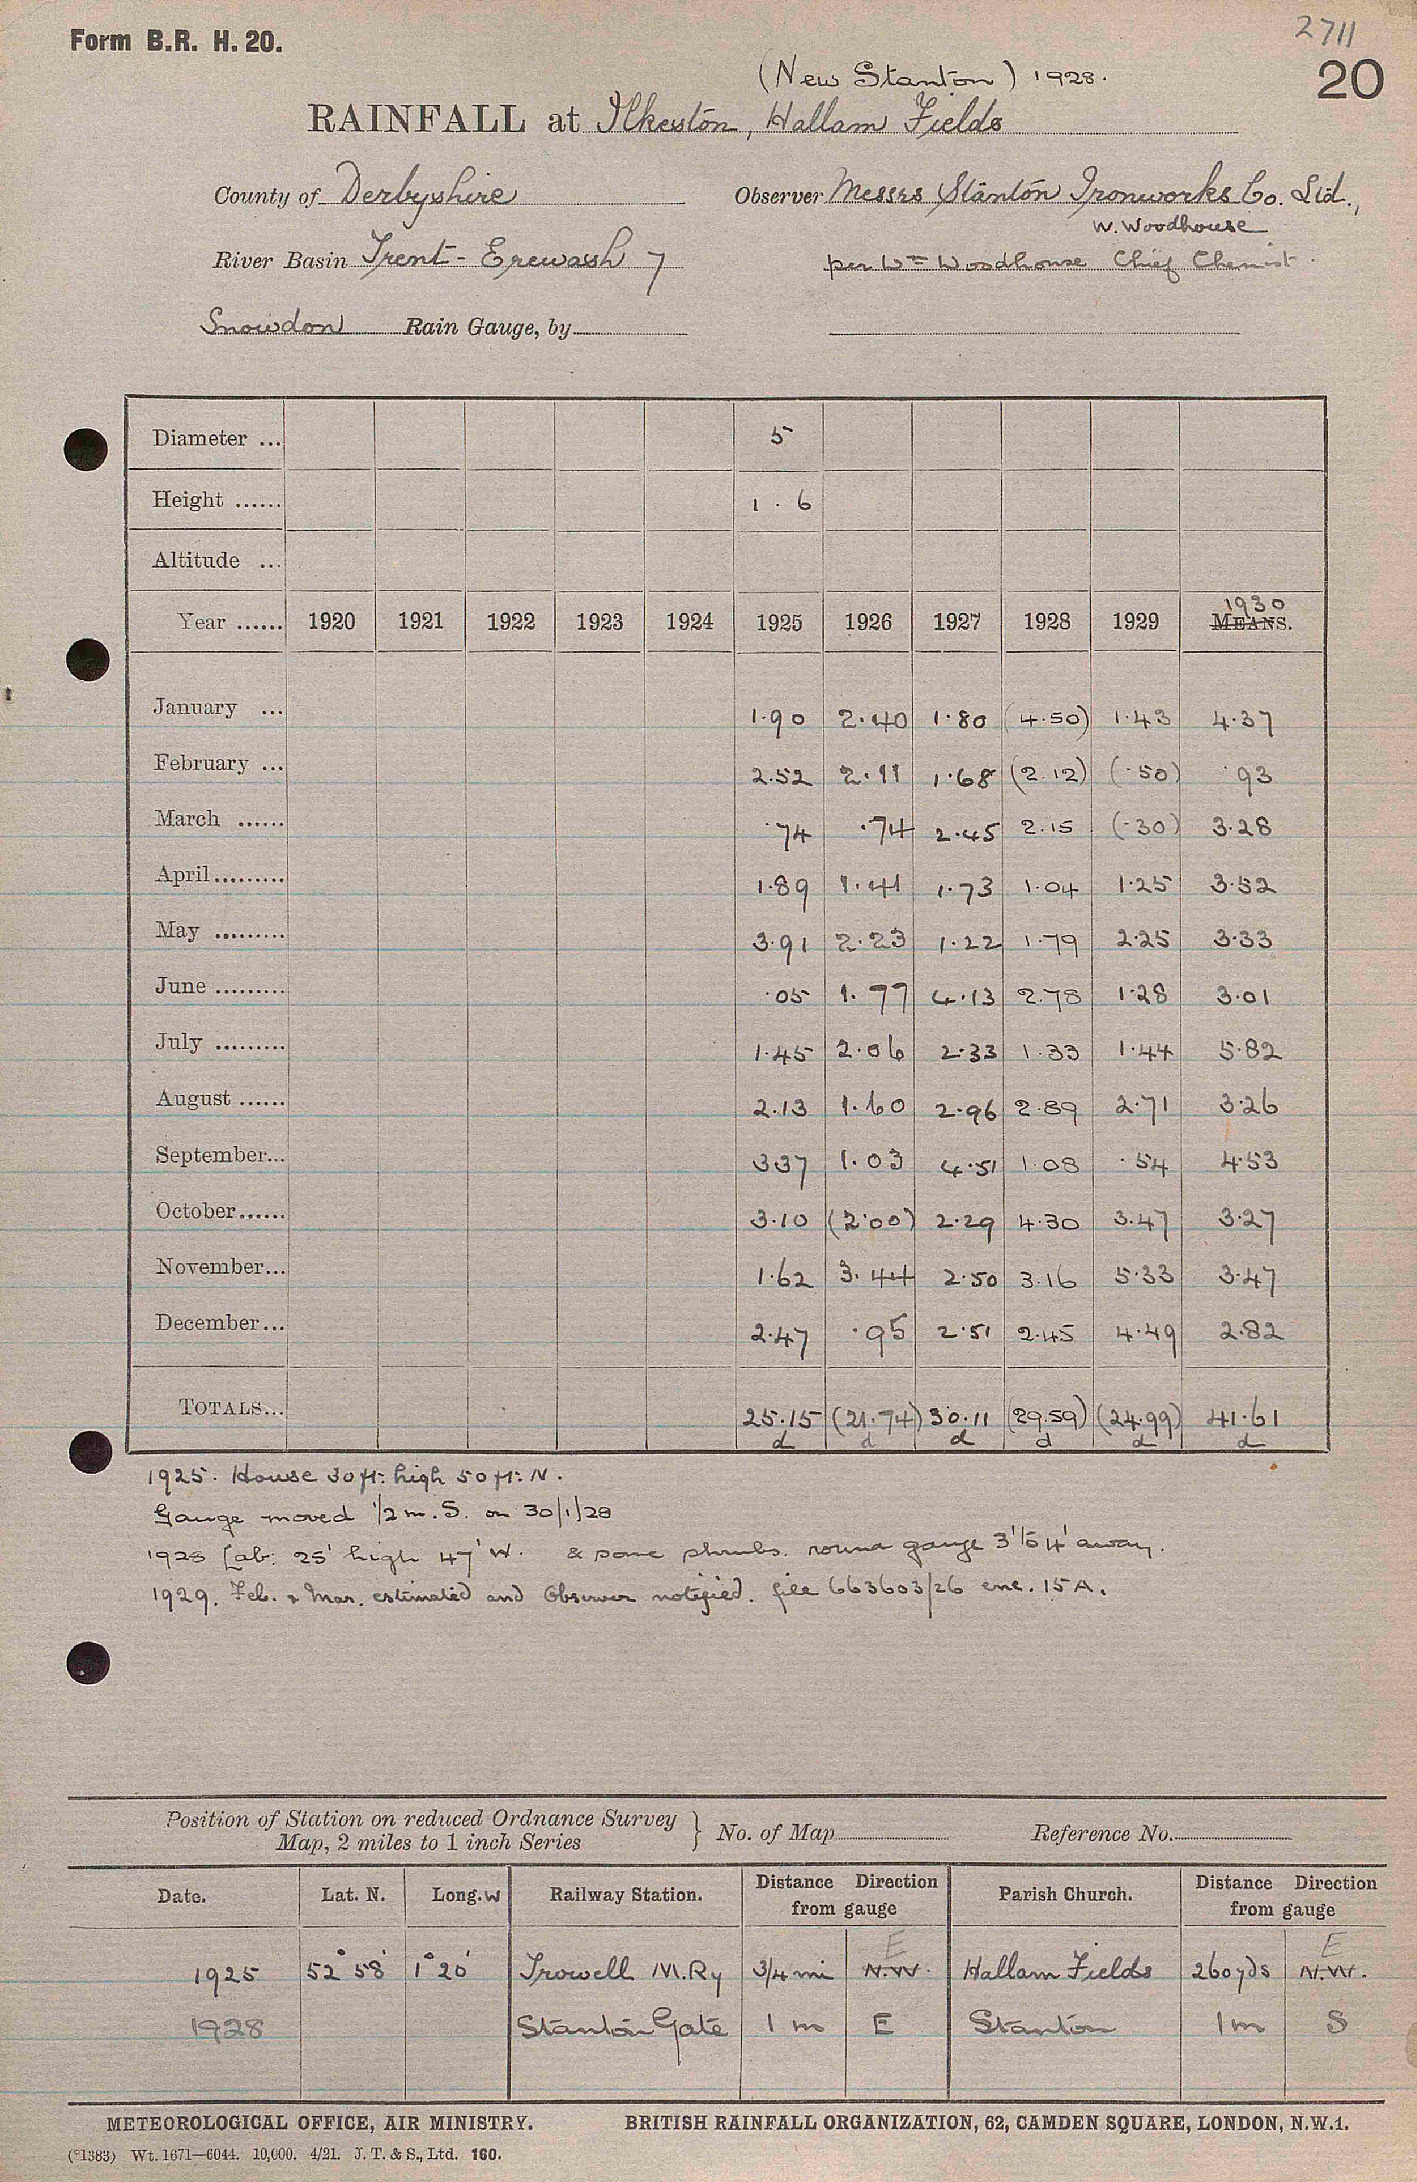 2711
Form B.R. H. 20.
20
(New Stanton) 1928.
RAINFALL at Ilkeston, Hallam Fields
County of Derbyshire Observer Messrs Stanton Ironworks Co. Ltd.,
W. Woodhouse
River Basin Trent - Erewash 7 per Wm Woodhouse Chief Chemist.
Snowdon Rain Gauge, by
Diameter ... 5
Height ...... 1 . 6
Altitude ...
1930
Year ...... 1920 1921 1922 1923 1924 1925 1926 1927 1928 1929 MEANS.
January ... 1.90 2.40 1.80 (4.50) 1.43 4.37
February ... 2.52 2.11 1.68 (2.12) (.50) .93
March ...... .74 .74 2.45 2.15 (.30) 3.28
April......... 1.89 1.41 1.73 1.04 1.25 3.52
May ......... 3.91 2.23 1.22 1.79 2.25 3.33
June ......... .05 1.77 4.13 2.78 1.28 3.01
July ......... 1.45 2.06 2.33 1.33 1.44 5.82
August ...... 2.13 1.60 2.96 2.89 2.71 3.26
September... 3.37 1.03 4.51 1.08 .54 4.53
October...... 3.10 (2.00) 2.29 4.30 3.47 3.27
November... 1.62 3.44 2.50 3.16 5.33 3.47
December... 2.47 .95 2.51 2.45 4.49 2.82
TOTALS... 25.15 (21.74) 30.11 (29.59) (24.99) 41.61
d d d d d d
1925. House 30ft. high 50ft. N.
Gauge moved 1/2 m. S. on 30/1/28
1928 Lab. 25' high 47' W. & some shrubs. round gauge 3' to 4' away.
1929. Feb. & Mar. estimated and Observer notified. file 663603/26 enc. 15A.
Position of Station on reduced Ordnance Survey
Map, 2 miles to 1 inch Series } No. of Map Reference No.
Date. Lat. N. Long. W Railway Station. Distance Direction from gauge Parish Church. Distance Direction from gauge
E E
1925 52° 58' 1° 20' Trowell M.Ry 3/4 mi N.W. Hallam Fields 260yds N.W.
1928 Stanton Gate 1 m E Stanton 1m S
METEOROLOGICAL OFFICE, AIR MINISTRY. BRITISH RAINFALL ORGANIZATION, 62, CAMDEN SQUARE, LONDON, N.W.1.
(*1383) Wt. 1671—6044. 10,000. 4/21. J. T. & S., Ltd. 160.